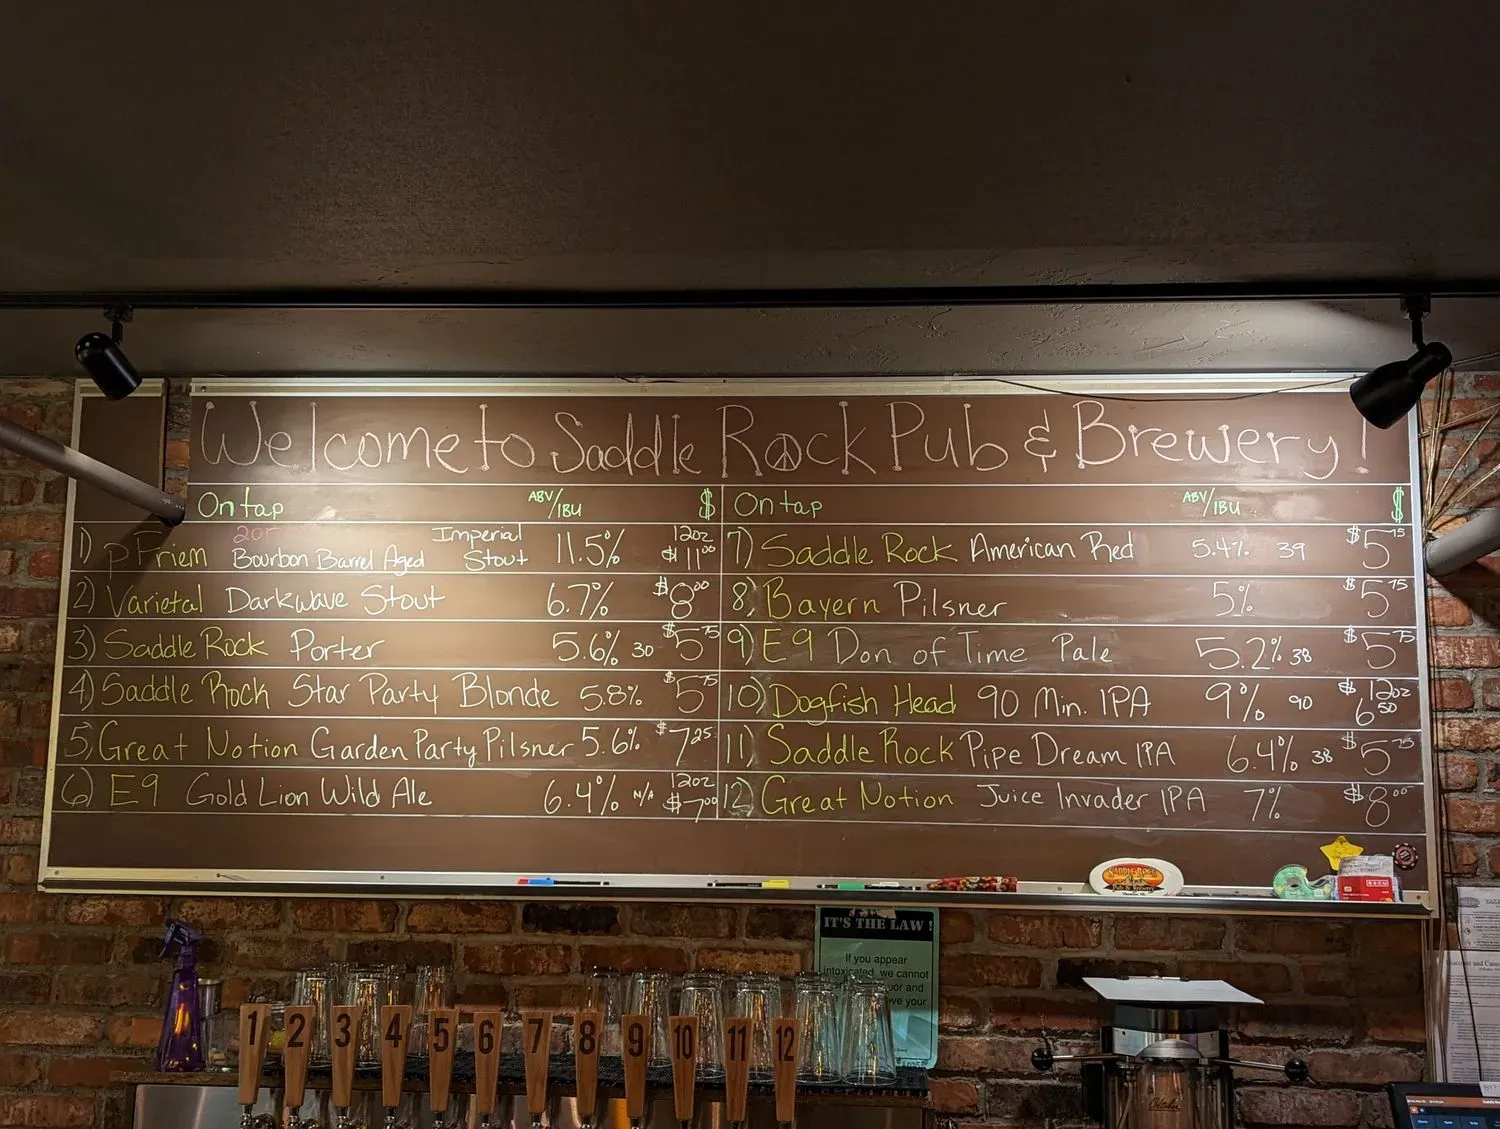 Welcome to Saddle Rock Pub & Brewery!
On tap ABV/IBU $
1) pFriem 2017 Bourbon Barrel Aged Imperial Stout 11.5% 12oz $11.00
2) Varietal Darkwave Stout 6.7% $8.00
3) Saddle Rock Porter 5.6% 30 $5.75
4) Saddle Rock Star Party Blonde 5.8% $5.75
5) Great Notion Garden Party Pilsner 5.6% $7.25
6) E9 Gold Lion Wild Ale 6.4% N/A 12oz $7.00
On tap ABV/IBU $
7) Saddle Rock American Red 5.4% 39 $5.75
8) Bayern Pilsner 5% $5.75
9) E9 Don of Time Pale 5.2% 38 $5.75
10) Dogfish Head 90 Min. IPA 9% 90 12oz $6.50
11) Saddle Rock Pipe Dream IPA 6.4% 38 $5.75
12) Great Notion Juice Invader IPA 7% $8.00
SADDLE ROCK
Pub & Brewery
IT'S THE LAW!
If you appear
intoxicated, we cannot
1 2 3 4 5 6 7 8 9 10 11 12